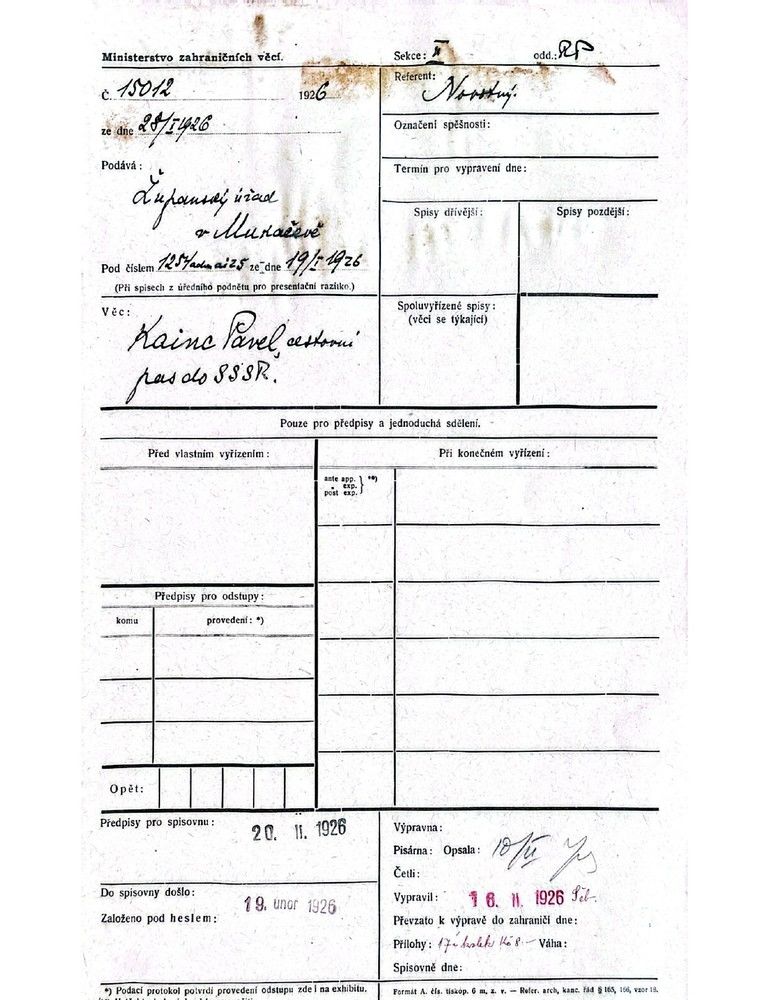 Ministerstvo zahraničních věcí.
Sekce: II odd.: RP
Č. 15012 1926
Referent:
Novotný.
ze dne 28/I 1926
Označení spěšnosti:
Podává:
Termín pro vypravení dne:
Županský úřad
v Mukačevě
Spisy dřívější:
Spisy pozdější:
Pod číslem ze dne 19/I 1926
(Při spisech z úředního podnětu pro presentační razítko.)
Věc:
Kainc Pavel, cestovní
pas do SSSR.
Spoluvyřízené spisy:
(věci se týkající)
Pouze pro předpisy a jednoduchá sdělení.
Před vlastním vyřízením:
Při konečném vyřízení:
ante app.
exp.
post exp. } **)
Předpisy pro odstupy:
komu
provedení: *)
Opět:
Předpisy pro spisovnu:
20. II. 1926
Do spisovny došlo:
19. únor 1926
Založeno pod heslem:
Výpravna:
Písárna: Opsala: 10/II
Četli:
Vypravil: 16. II. 1926
Převzato k výpravě do zahraničí dne:
Přílohy: Váha:
Spisovně dne:
*) Podací protokol potvrdí provedení odstupu zde i na exhibitu.
Formát A. čís. tiskop. 6 m. z. v. — Refer. arch, kanc. řád § 165, 166, vzor 18.